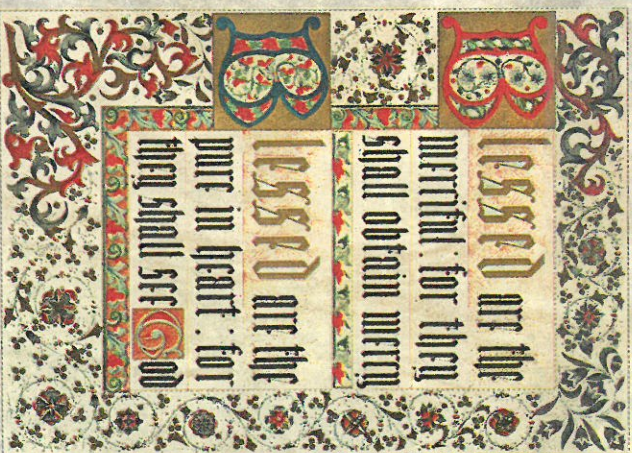 Blessed are the
merciful: for they
shall obtain mercy
Blessed are the
pure in heart: for
they shall see God